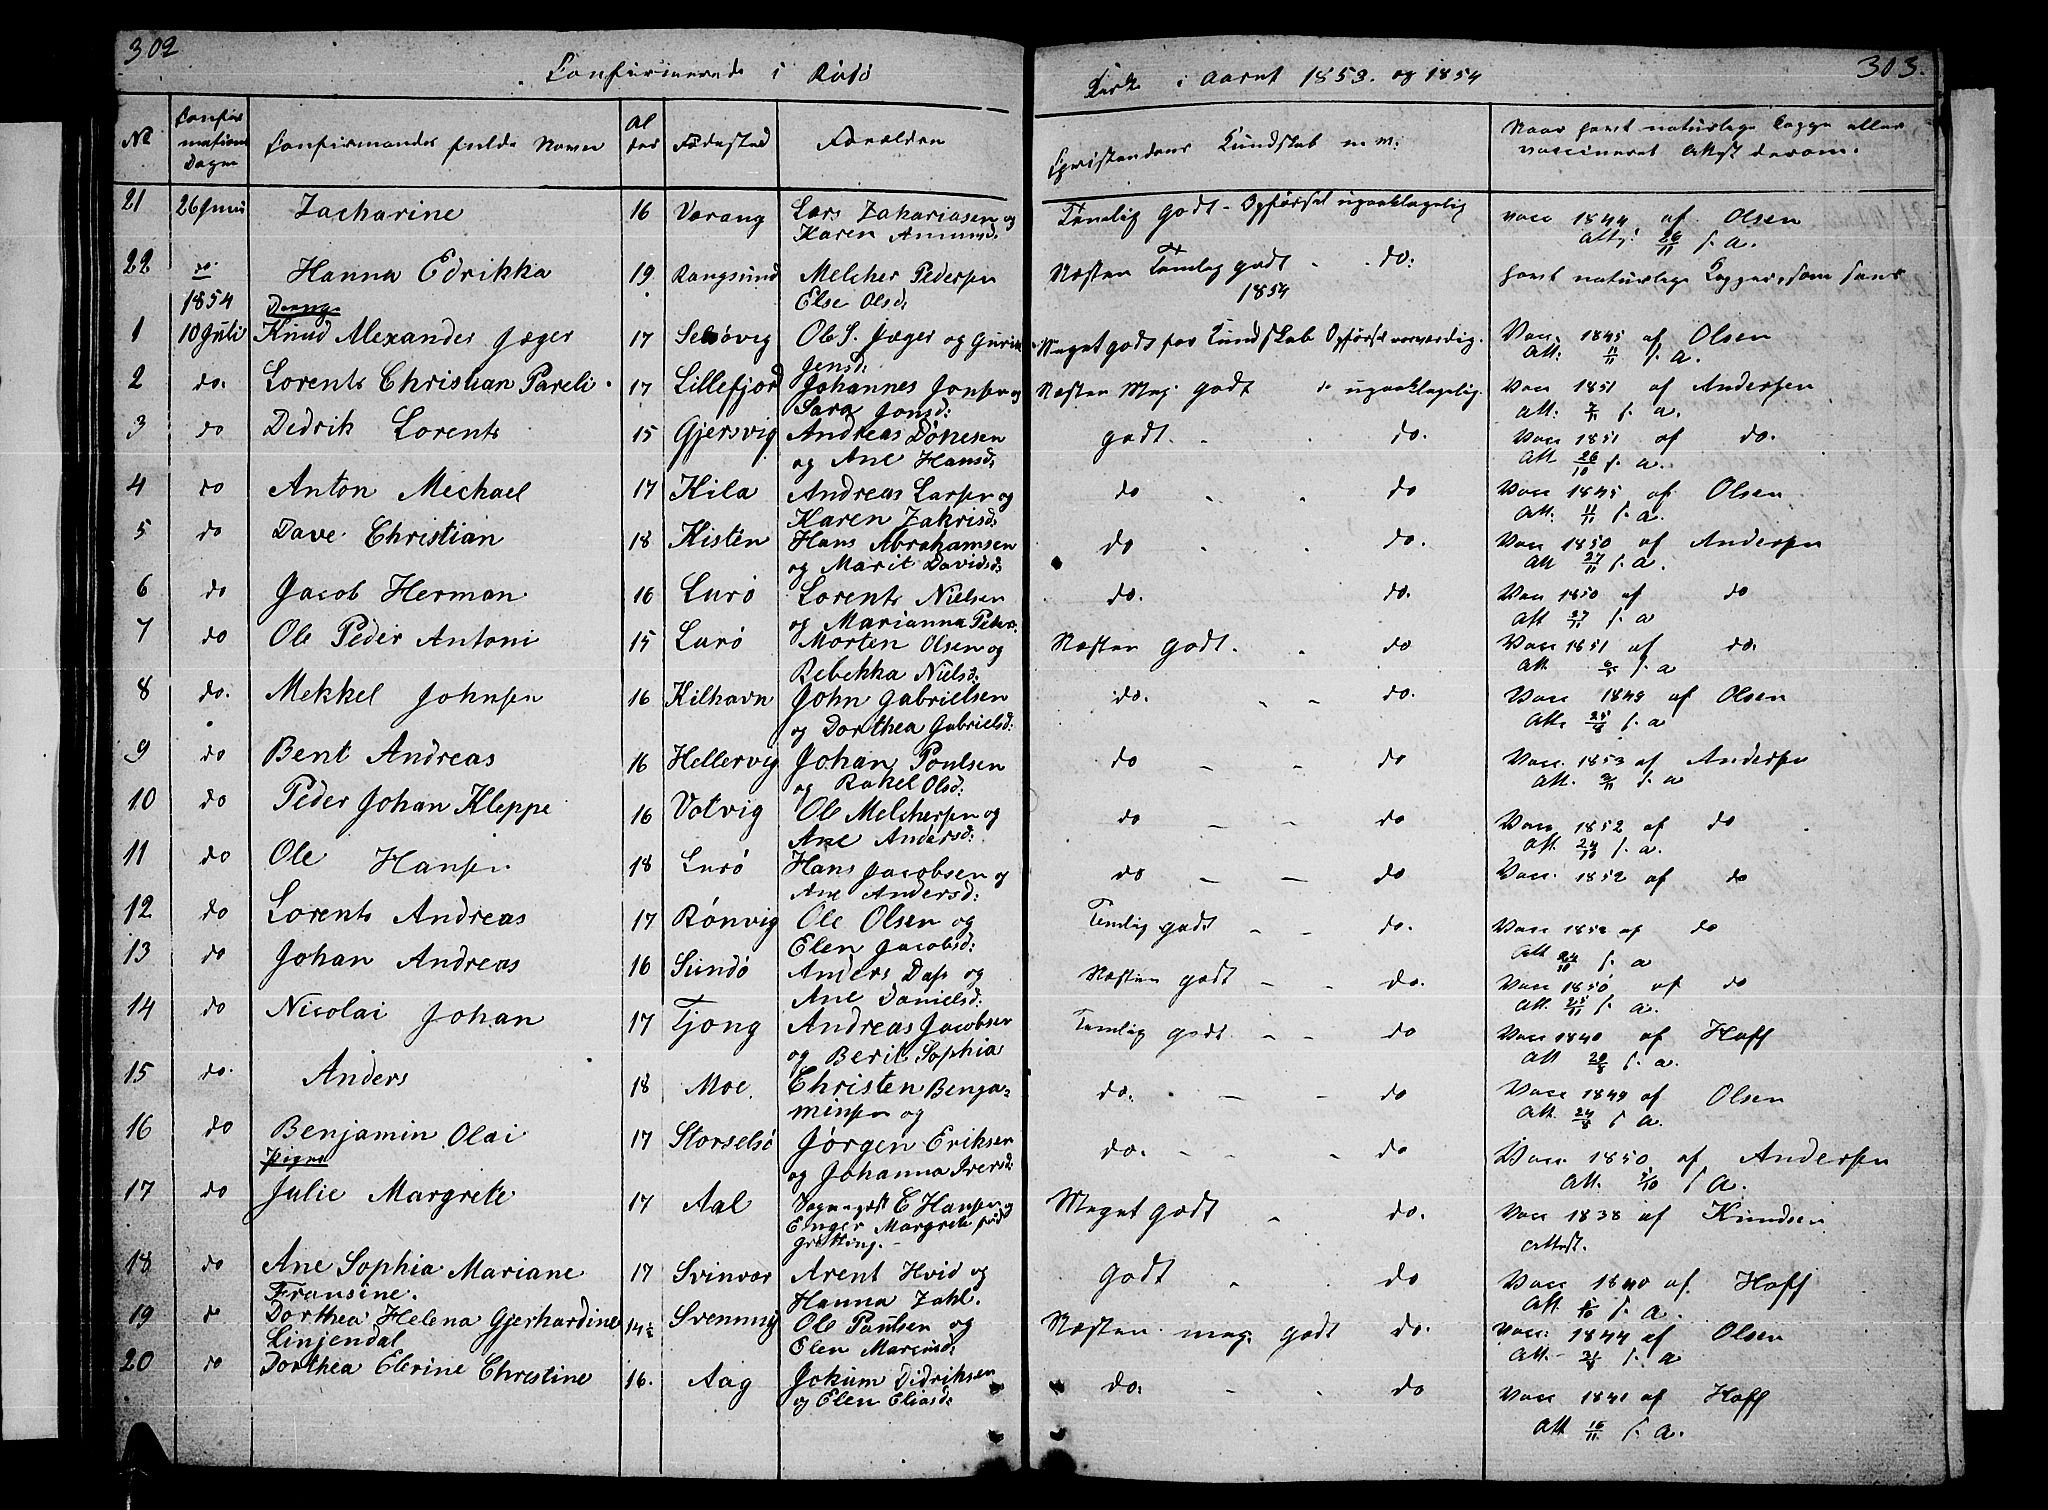 302
303.
Confirmerede i Rödö
Kirke i Aaret 1853. og 1854
No
Confir
mations
Dagen
Confirmandes fulde Navn
Al
der
Födested
Forældre
Christendoms Kundskab m.m.
Naar havt naturlige Kopper eller
vaccineret Attest derom.
21 26 Juni Zacharine 16 Værang Lars Zakariasen og Temlig godt - Opförsel upaaklagelig vacc 1844 af Olsen
Karen Amunsd: Att: 26/11 s. a.
22 do Hanna Edrikka 19 Rangsund Melcher Pedersen Næsten Temlig godt - do: havt naturlige Kopper, som sees
1854 Dreng Else Olsd: 1854
1 10 Juli Knud Alexander Jæger 17 Selsövig Ole S. Jæger og Guri Meget godt for Kundskab Opförsel Vacc. 1845 af Olsen
Jensd: Att: 11/11 s. a.
2 do. Lorents Christian Pareli. 17 Lillefjord Johannes Jonsen og Næsten Meg. godt do upaaklagelig. Vacc 1851 af Andersen
Sara Jonsd: Att: s. a.
3 do Dedrik Lorents 15 Gjersvig Andreas Dönesen godt. - do. Vacc 1851 af do.
og Ane Hansd: Att 26/10 s. a.
4 do Anton Michael 17 Kila Andreas Larsen og do - - do Vacc 1845 af Olsen
Karen Zakrisd: Att: 11/11 s. a.
5 do Dave Christian 18 Kisten Hans Abrahamsen do - do. Vacc 1850 af Andersen
og Marit Davidsd: Att 27/11 s. a.
6 do Jacob Herman 16 Lurö Lorents Nielsen do. do. Vacc 1850 af do
og Marianna Peters: Att 27/11 s. a
7 do Ole Peder Antoni 15 Lurö Morten Olsen og Næsten godt. - do Vacc 1851 af do.
Rebekka Nielsd: Att. s. a
8 do. Mekkel Johnsen 16 Kilhavn John Gabrielsen do. - - do. Vacc 1849 af Olsen
og Dorthea Gabrielsd: Att. 25/8 s. a
9 do Bent Andreas 16 Hellervig Johan Poulsen do - - do Vacc. 1853 af Andersen
og Rakel Olsd: Att. s. a
10 do Peder Johan Kleppe 16 Votvig Ole Melchersen og do - - do Vacc 1852 af do
Ane Andersd: Att. 24/10 s. a.
11 do Ole Hansen 18 Lurö Hans Jacobsen og do - - do Vacc. 1852 af do
Ane Andersd:
12 do Lorents Andreas 17 Rönvig Ole Olsen og Temlig godt - - do. Vacc 1852 af do
Elen Jacobsd: Att 24/10 s. a
13 do Johan Andreas 16 Sundö Anders Dass og Næsten godt - - do. Vacc 1850 af do
Ane Danielsd: Att. 25/11 s. a.
14 do Nicolai Johan 17 Tjong Andreas Jacobsen Temlig godt - - do Vacc 1840 af Hoff
og Berit Sophia Att 20/8 s. a.
15 do. Anders 18 Moe. Christen Benja- do. - - do Vacc 1849 af Olsen
minsen og Att. 24/8 s a.
16 do Benjamin Olai 17 Storselsö Jörgen Eriksen do. - - - do Vacc. 1850 af Andersen
Piger og Johanna Iversd: Att. s a.
17 do Julie Margrete 17 Aal C Hansen og Meget godt - do. Vacc 1838 af Knudsen
Enger Margrete föd Attest.
Grötting. -
18 do Ane Sophia Mariane 17 Svinvær Arent Hvid og godt - do Vacc 1840 af. Hoff
Fransine. Hanna Zahl. Att s. a.
19 d Dorthea Helena Gjerhardine 14½ Svenning Ole Paulsen og Næsten meg. godt do. Vacc. 1844 af Olsen
Linjendal Elen Marcusd: Att. s. a
20 do Dorthea Elerine Christine 16. Aag Jokum Didriksen do. - - do Vacc 1841 af Hoff
og Elen Eliasd: Att 16/11 s. a.